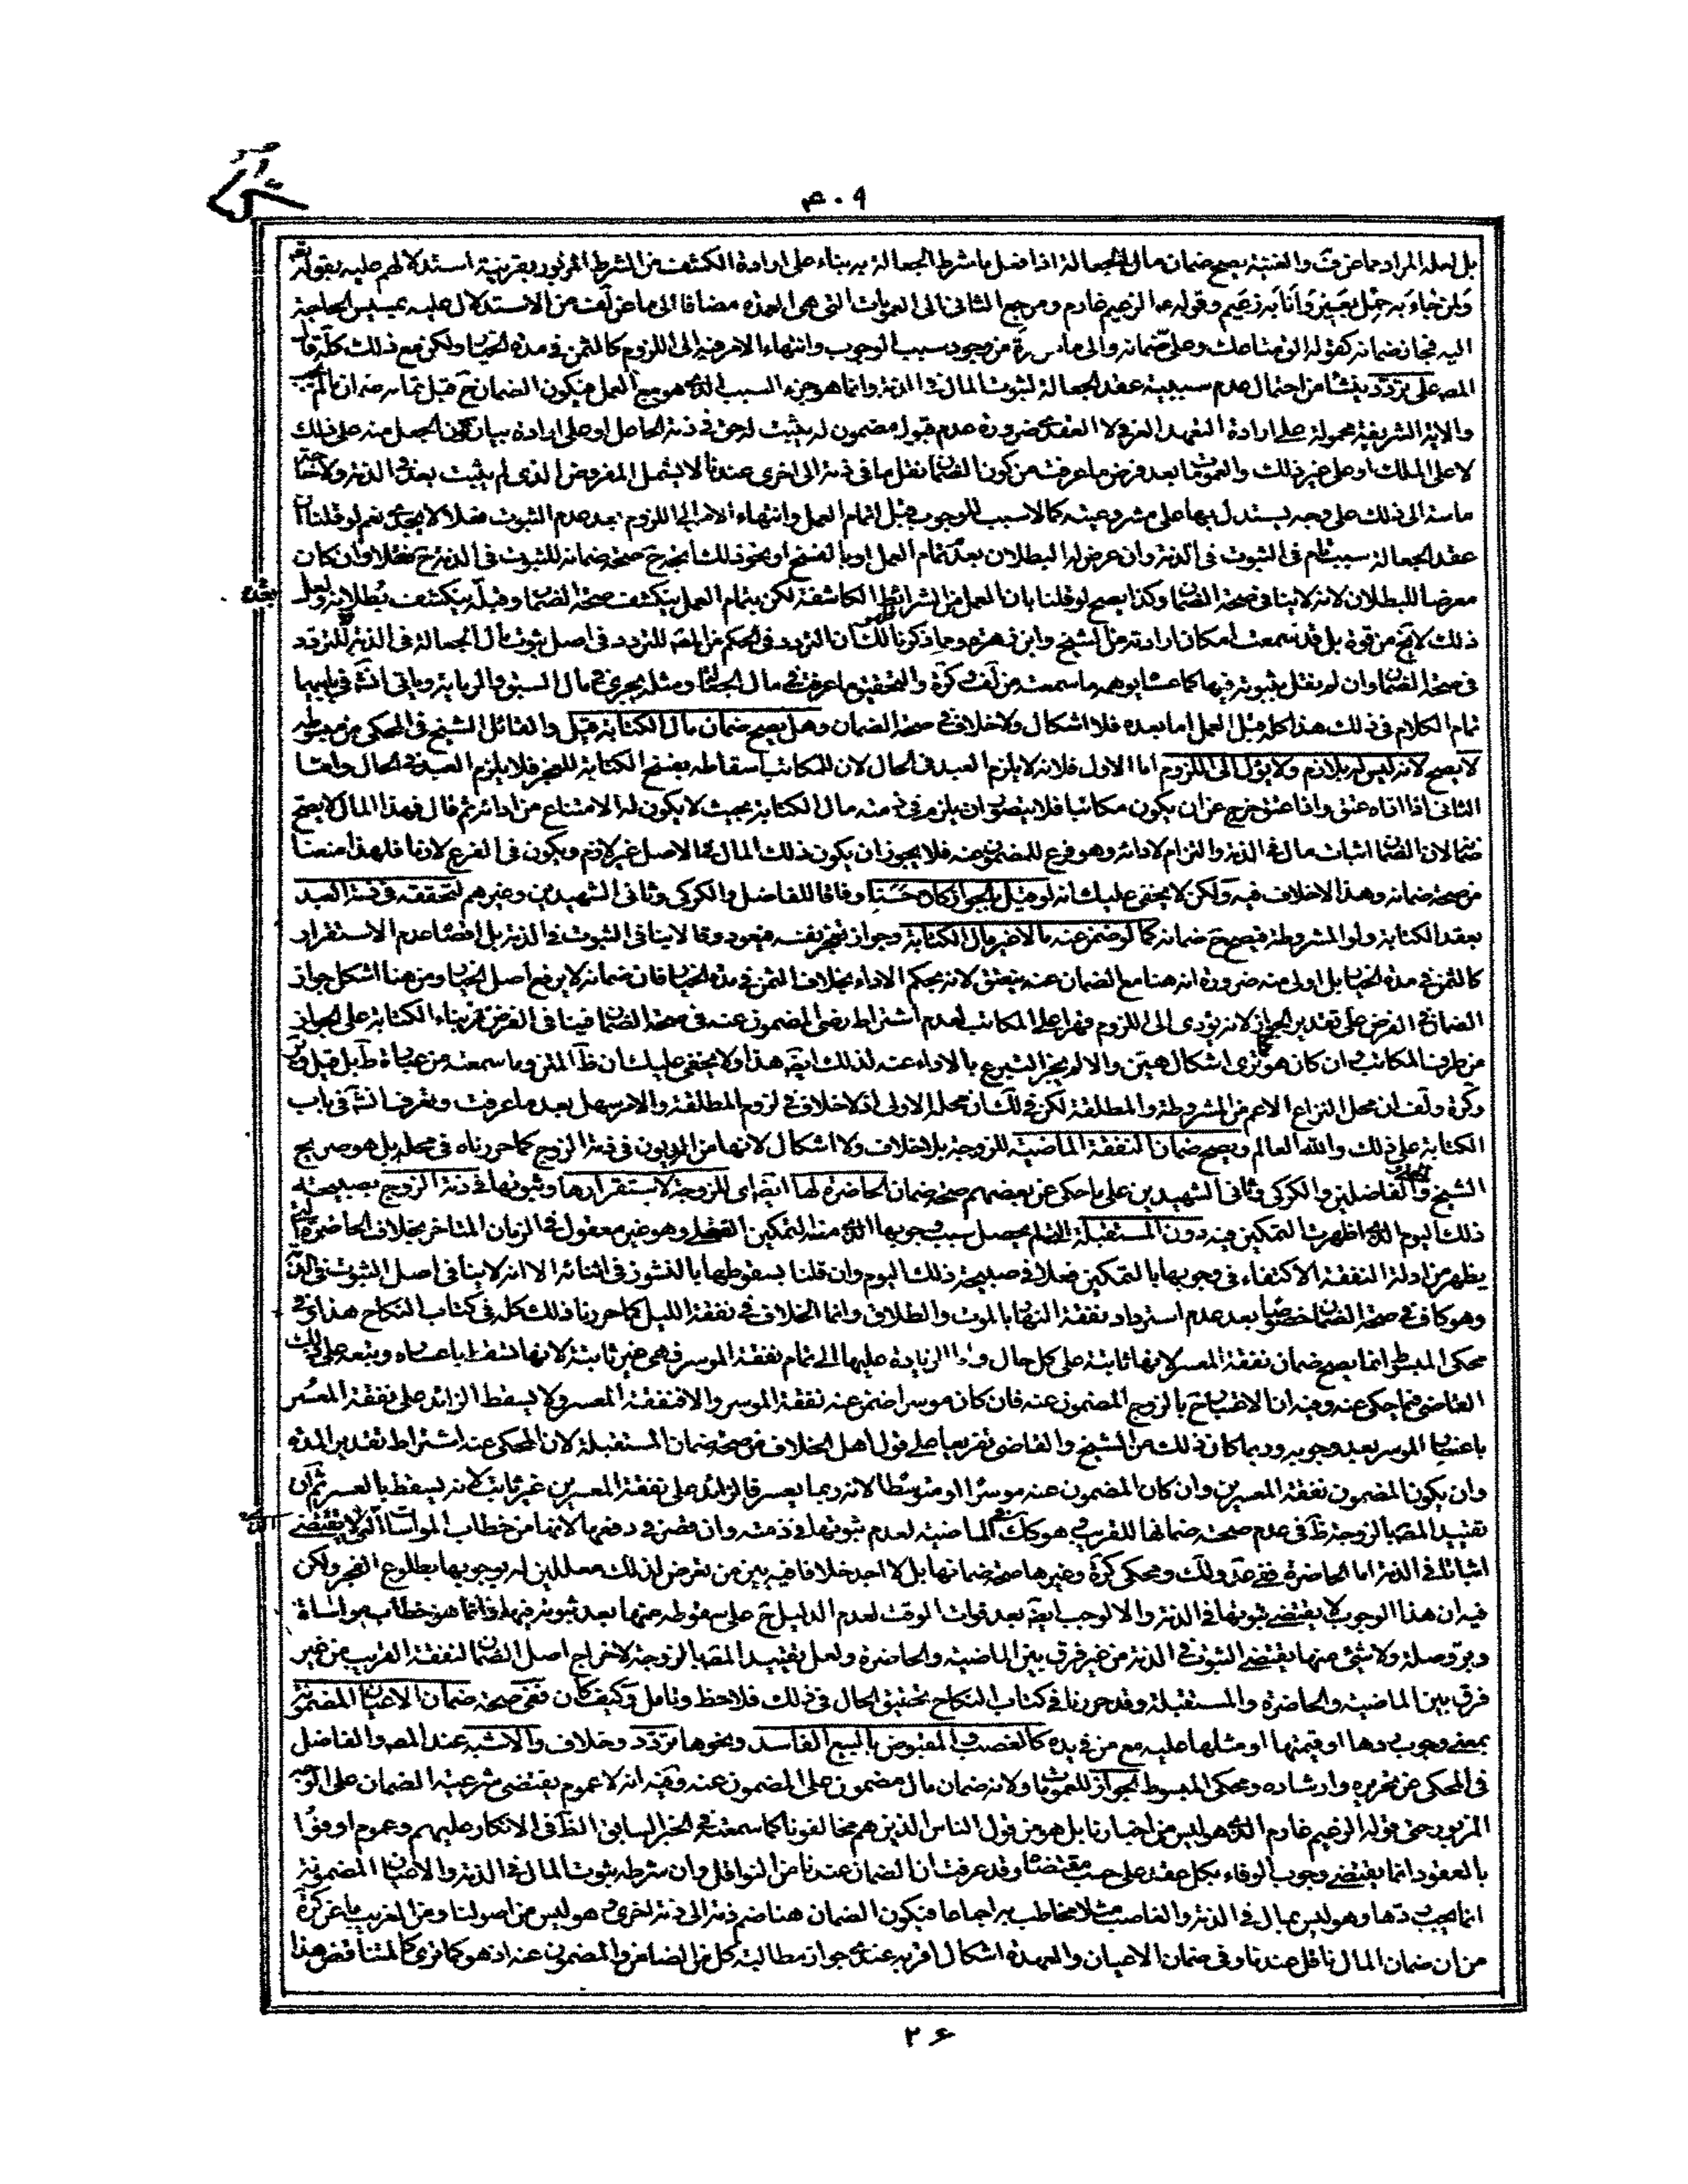 ٤٠٩
بل لعله المراد مما عن ف والغنية يصح ضمان مال الجعالة اذا فعل ما شرط الجعالة به بناء على ارادة الكشف من الشرط المزبور بقرينة استدلالهم عليه بقوله تع
ولمن جاء به حمل بعير وانا به زعيم وقوله ع الزعيم غارم ومرجع الثانى الى العمومات التى هى العمدة مضافا الى ما عن لف من الاستدلال عليه بمسيس الحاجة
اليه فجاز ضمانه كقوله الق متاعك وعلىّ ضمانه والى ما من وجود سبب الوجوب وانتهاء الامر فيه الى اللزوم كالثمن فى مدة الخيار ولكن مع ذلك كله قال
المصـ على تردد ينشأ من احتمال عدم سببية عقد الجعالة لثبوت المال فى الذمة وانما هو جزء السبب الذى هو مع العمل فيكون الضمان ح قبل تمامه ضمان ما لم يجب
والاية الشريفة محمولة على ارادة التعهد العرفى لا العقدى ضرورة عدم قبوله مضمون له يثبت له حق فى ذمة الجاعل او على ارادة بيان كون الجعل منه على ذلك
لا على الملك او على غير ذلك والعمومات بعد فرض ما عرفت من كون الضمان نقل ما فى ذمة الى اخرى عندنا لا يشمل المفروض الذى لم يثبت بعد فى الذمة ولا حاجة
ماسة الى ذلك على وجه يستدل بها على مشروعيته كما لا سبب للوجوب قبل اتمام العمل وانتهاء الامر الى اللزوم بعد عدم الثبوت فعلا لا يجدى نعم لو قلنا ان
عقد الجعالة سبب تام فى الثبوت فى الذمة وان عرض له البطلان بعدم تمام العمل او بالفسخ او نحو ذلك اتجه ح صحة ضمانه للثبوت فى الذمة ح فعلا وان كان
معرضا للبطلان لانه لا ينافى صحة الضمان وكذا يصح لو قلنا بان العمل من الشرائط الكاشفة لكن بتمام العمل ينكشف صحة الضمان وقبله ينكشف بطلانه ولعل
ذلك لا يخ من قوة بل قد سمعت امكان ارادته من الشيخ وابن زهرة ومما ذكرنا لك ان التردد فى الحكم من المصـ للتردد فى اصل ثبوت مال الجعالة فى الذمة لا للتردد
فى صحة الضمان وان لم نقل بثبوته فيها كما عساه يوهمه ما سمعته من لف وكرة والتحقيق ما عرفت فى مال الجعالة ومثله يجرى فى مال السبق والرماية وياتى انشا فى بابهما
تمام الكلام فى ذلك هذا كله قبل العمل اما بعده فلا اشكال ولا خلاف فى صحة الضمان وهل يصح ضمان مال الكتابة قيل والقائل الشيخ فى المحكى من مبسوطه
لا يصح لانه ليس بلازم ولا يؤل الى اللزوم اما الاول فلانه لا يلزم العبد فى الحال لان للمكاتب اسقاطه بفسخ الكتابة للعجز فلا يلزم العبد فى الحال واما
الثانى اذا اداه عتق واذا عتق خرج عن ان يكون مكاتبا فلا يتصور ان يلزم فى ذمته مال الكتابة بحيث لا يكون له الامتناع من ادائه ثم قال فهذا المال لا يصح
ضمانه لان الضمان اثبات مال فى الذمة والتزام لادائه وهو فرع للمضمون عنه فلا يجوز ان يكون ذلك المال فى الاصل غير لازم ويكون فى الفرع لازما فلهذا منعنا
من صحة ضمانه وهذا لا خلاف فيه ولكن لا يخفى عليك انه لو قيل بالجواز كان حسنا وفاقا للفاضل والكركى وثانى الشهيدين وغيرهم لتحققه فى ذمة العبد
بعقد الكتابة ولو المشروطة فيصح ح ضمانه كما لو ضمن عنه مالا غير مال الكتابة وجواز تعجيز نفسه فيعود رقا لا ينافى الثبوت فى الذمة بل اقصاه عدم الاستقرار
كالثمن فى مدة الخيار بل اولى منه ضرورة انه هنا مع الضمان عنه ينعتق لانه بحكم الاداء بخلاف الثمن فى مدة الخيار فان ضمانه لا يرفع اصل الخيار ومن هنا اشكل جواز
الضمان فى الفرض على تقدير الجواز لانه يؤدى الى اللزوم قهرا على المكاتب لعدم اشتراط رضى المضمون عنه فى صحة الضمان فينافى الغرض من بناء الكتابة على الجواز
من طرف المكاتب وان كان هو كما ترى اشكال هين والا لم يجز التبرع بالاداء عنه لذلك ايضا هذا ولا يخفى عليك ان ظ المتن وما سمعته من عبارة ط بل قيل
وكرة ولف ان محل النزاع الاعم من المشروطة والمطلقة لكن فى لك ان محله الاولى اذ لا خلاف فى لزوم المطلقة والامر سهل بعد ما عرفت وتعرف انشا فى باب
الكتابة على ذلك والله العالم ويصح ضمان النفقة الماضية للزوجة بلا خلاف ولا اشكال لانها من الديون فى ذمة الزوج كما حررناه فى محله بل هو صريح
الشيخ والفاضلين والكركى وثانى الشهيدين على ما حكى عن بعضهم صحة ضمان الحاضرة لها ايضا اى للزوجة لاستقرارها وثبوتها فى ذمة الزوج بصبيحة
ذلك اليوم الذى اظهرت التمكين فيه دون المستقبلة التى لم يحصل سبب وجوبها الذى منه التمكين الفعلى وهو غير معقول فى الزمان المتاخر بخلاف الحاضرة التى
يظهر من ادلة النفقة الاكتفاء فى وجوبها بالتمكين فعلا فى صبيحة ذلك اليوم وان قلنا بسقوطها بالنشوز فى اثنائه الا انه لا ينافى اصل الثبوت فى الذمة
وهو كاف فى صحة الضمان خصوصا بعد عدم استرداد نفقة النهار بالموت والطلاق وانما الخلاف فى نفقة الليل كما حررنا ذلك كله فى كتاب النكاح هذا وفى
محكى المبسوط انما يصح ضمان نفقة المعسر لانها ثابتة على كل حال واما الزيادة عليها الى تمام نفقة الموسر فهى غير ثابتة لانها تسقط باعساره وتبعه على ذلك
القاضى فيما حكى عنه وفيه ان الاعتبار ح بالزوج المضمون عنه فان كان موسرا ضمن عنه نفقة الموسر والا فنفقة المعسر ولا يسقط الزائد على نفقة المعسر
باعسار الموسر بعد وجوبه وربما كان ذلك من الشيخ والقاضى تفريعا على قول اهل الخلاف من صحة ضمان المستقبلة لان المحكى عنه اشتراط تقدير المدة
وان يكون المضمون نفقة المعسرين وان كان المضمون عنه موسرا او متوسطا لانه ربما يعسر فالزائد على نفقة المعسرين غير ثابت لانه يسقط بالعسر ثم ان
تقييد المصـ بالزوجة ظ فى عدم صحة ضمانها للقريب وهو كك فى الماضية لعدم ثبوتها فى ذمته وان قصر فى دفعها لانها من خطاب المواساة الذى لا يقتضى
اشتغالا فى الذمة اما الحاضرة ففى عد ولك ومحكى كرة وغيرها صحة ضمانها بل لا اجد خلافا فيه بين من تعرض لذلك معللين له بوجوبها بطلوع الفجر ولكن
فيه ان هذا الوجوب لا يقتضى ثبوتها فى الذمة والا لوجب ايضا بعد فوات الوقت لعدم الدليل ح على سقوطه عنها بعد ثبوته فيها وانما هو خطاب مواساة
وبر وصلة ولا شئ منها يقتضى الثبوت فى الذمة من غير فرق بين الماضية والحاضرة ولعل تقييد المصـ بالزوجة لاخراج اصل الضمان لنفقة القريب من غير
فرق بين الماضية والحاضرة والمستقبلة وقد حررنا فى كتاب النكاح تحقيق الحال فى ذلك فلاحظ وتامل وكيف كان ففى صحة ضمان الاعيان المضمونة
بمعنى وجوب ردها او قيمتها او مثلها عليه مع من فى يده كالغصب والمقبوض بالبيع الفاسد ونحوها تردد وخلاف والاشبه عند المصـ والفاضل
فى المحكى عن تحريره وارشاده ومحكى المبسوط الجواز للعمومات ولانه ضمان مال مضمون على المضمون عنه وفيه انه لا عموم يقتضى شرعية الضمان على الوجه
المزبور حتى قوله الزعيم غارم الذى هو ليس من اخبارنا بل هو من قول الناس الذين هم مخالفونا كما سمعته فى الخبر السابق الظ فى الانكار عليهم وعموم اوفوا
بالعقود انما يقتضى وجوب الوفاء بكل عقد على حسب مقتضاه وقد عرفت ان الضمان عندنا من النواقل وان شرطه ثبوت المال فى الذمة والاعيان المضمونة
انما يجب ردها وهو ليس بمال فى الذمة والغاصب مثلا مخاطب به اجماعا فيكون الضمان هنا ضم ذمة الى ذمة اخرى وهو ليس من اصولنا ومن الغريب ما عن كرة
من ان ضمان المال ناقل عندنا وفى ضمان الاعيان والعهدة اشكال اقربه عندى جواز مطالبة كل من الضامن والمضمون عنه اذ هو كما ترى كالمتناقض هذا
٢٦